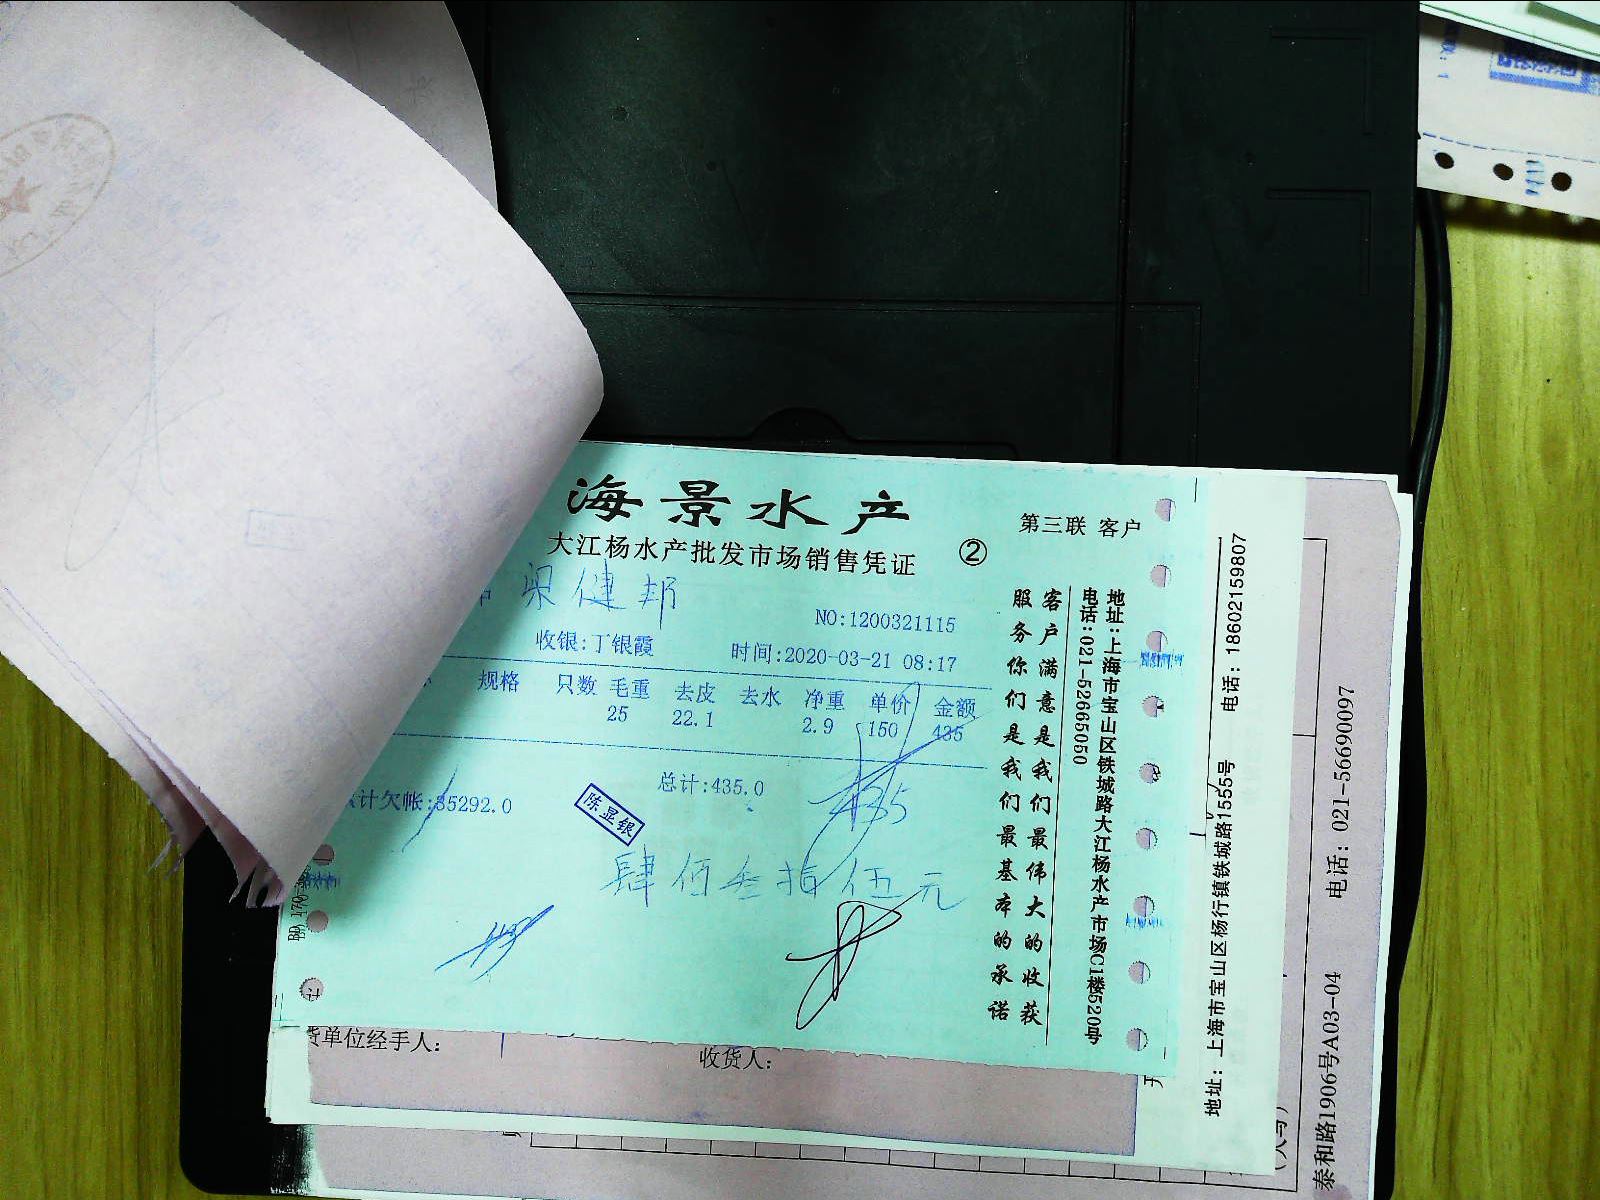 海景水产
第三联 客户
大江杨水产批发市场销售凭证
②
梁健邦
NO:1200321115
收银:丁银霞
时间:2020-03-21 08:17
规格 只数 毛重 去皮 去水 净重 单价 金额
25 22.1 2.9 150 435
总计:435.0
435
计欠帐:35292.0
陈显银
肆佰叁拾伍元
客户满意是我们最伟大的收获
服务你们是我们最基本的承诺
地址:上海市宝山区铁城路大江杨水产市场C1楼520号
电话:021-52665050
地址: 上海市宝山区杨行镇铁城路1555号 电话: 18602159807
泰和路1906号A03-04 电话: 021-56690097
货单位经手人:
收货人: